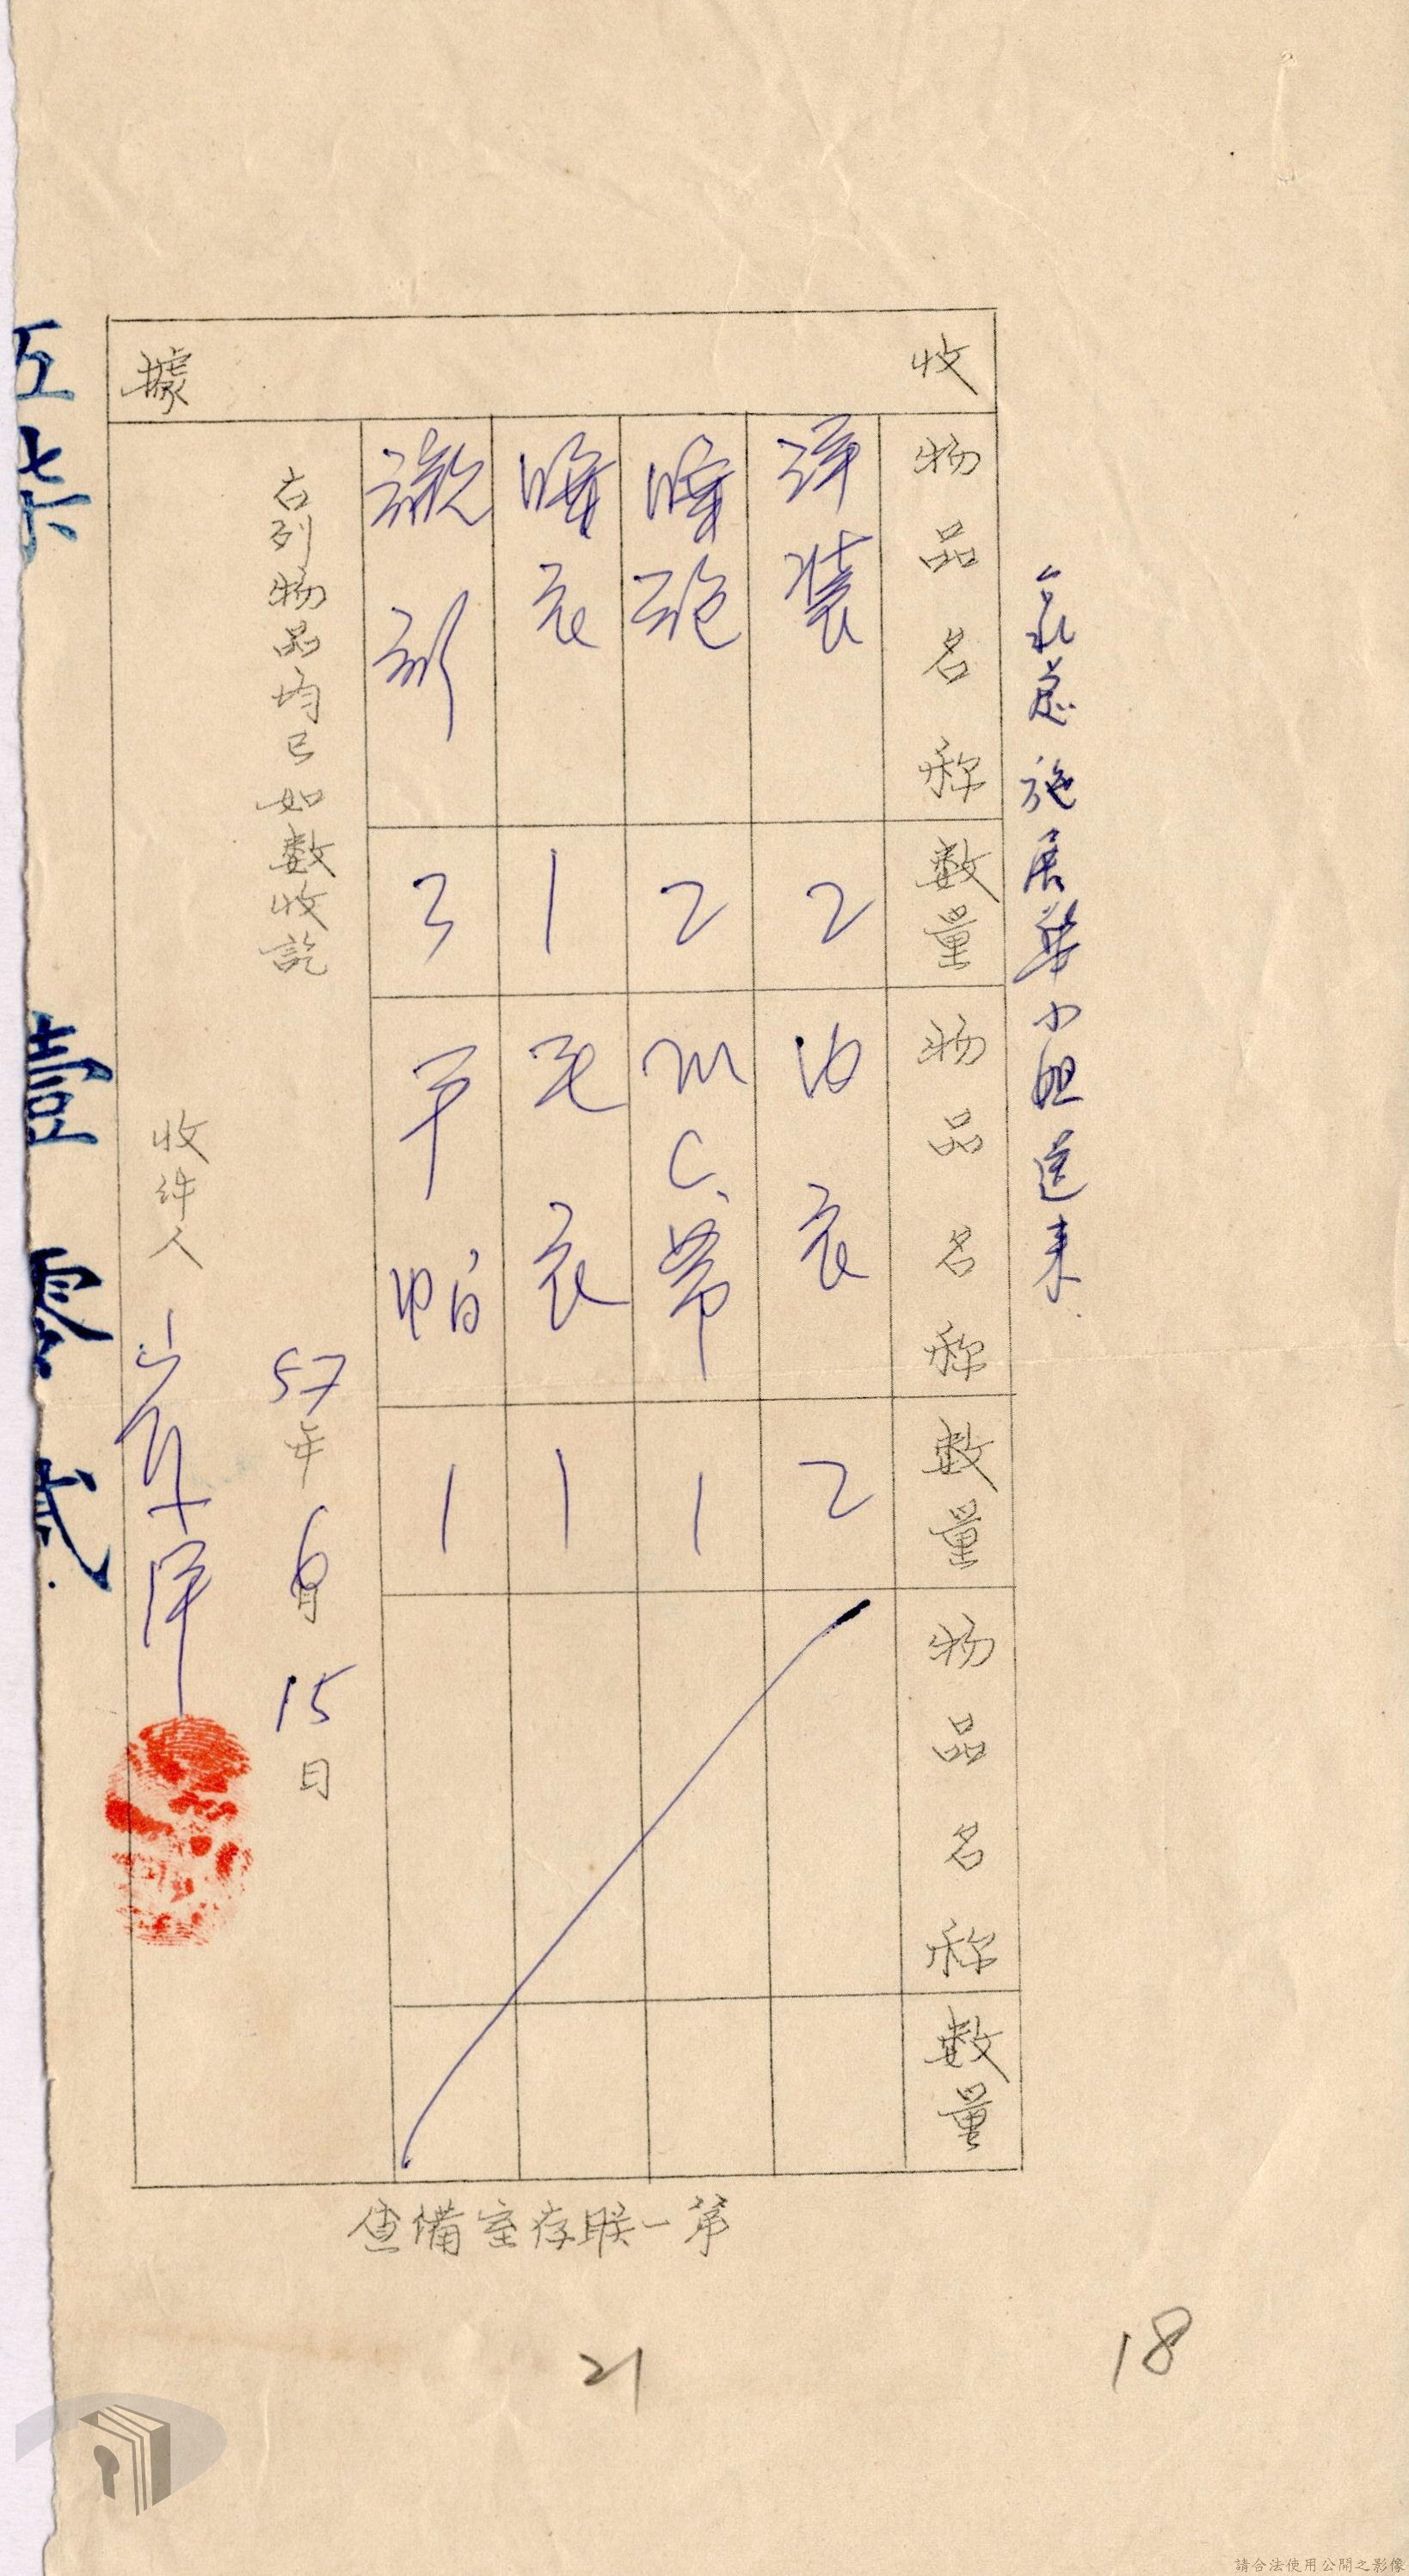 施展華小姐送来
收據
物品名称 數量 物品名称 數量 物品名称 數量
洋装 2 内衣 2
睡袍 2 M.C.帶 1
睡衣 1 毛衣 1
3 手帕 1
右列物品均已如數收訖
57年6月15日
收件人
第一联存室備查
伍柒 壹零弍
21
18
請合法使用公開之影像